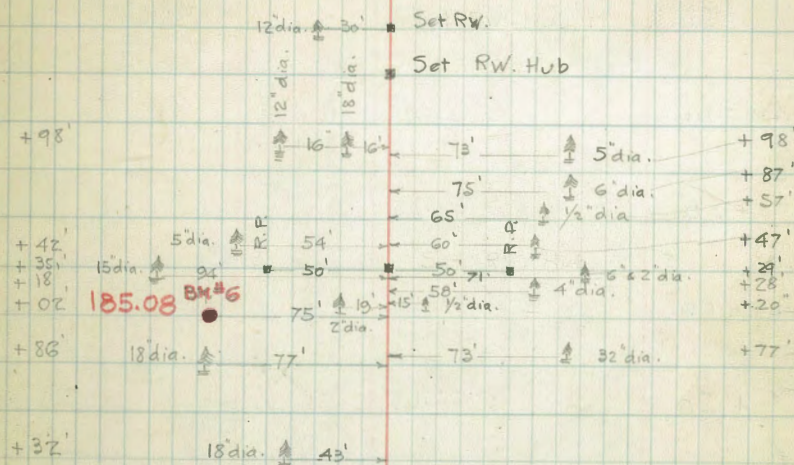 12"dia. 30' Set RW.
12" dia. 18" dia. Set RW. Hub
+98' 16' 16' 73' 5"dia. +98'
75' 6"dia. +87'
65' 1/2"dia +57'
+42' 5"dia. R.P. 54' 60' R.P. +47'
+35' 15"dia. 94' 50' 50' 71' 6"& 2"dia. +29'
+18' 58' 4"dia. +28'
+02' 185.08 BM#6 75' 19' 15' 1/2"dia. +20"
2"dia.
+86' 18"dia. 77' 73' 32"dia. +77'
+32' 18"dia. 43'